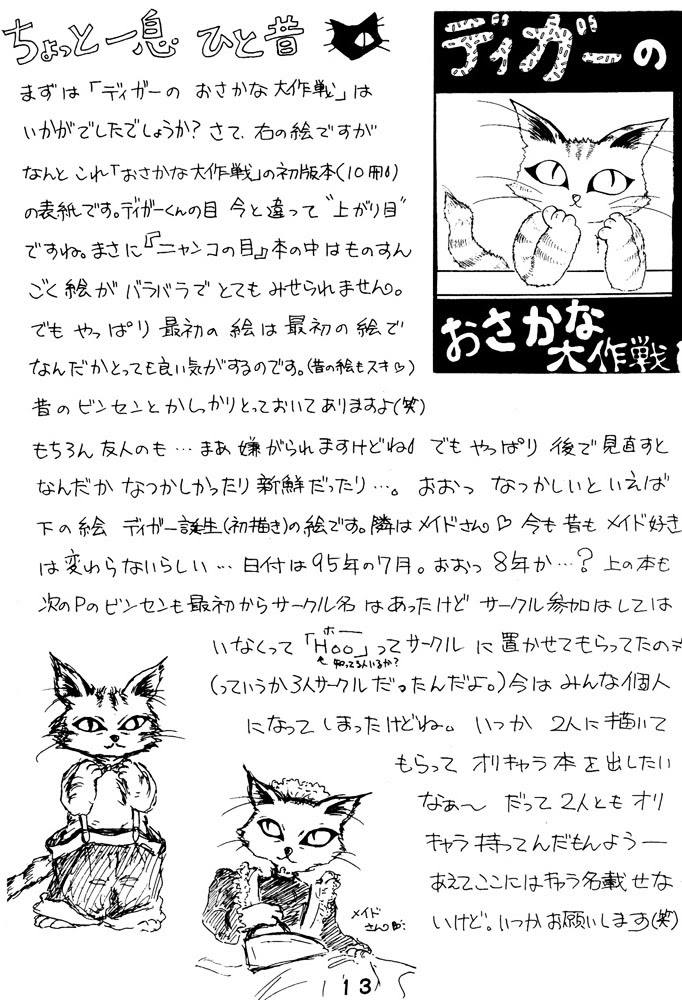 ちょっと一息 ひと昔
ディガーの
おさかな
大作戦
まずは「ディガーの おさかな大作戦」は
いかがでしたでしょうか？さて、右の絵ですが
なんと これ「おさかな大作戦」の初版本(10冊)
の表紙です。ディガーくんの目 今と違って“上がり目”
ですね。まさに『ニャンコの目』本の中はものすん
ごく絵が バラバラで とても みせられません。
でも やっぱり 最初の 絵は 最初の 絵で
なんだかとっても良い気がするのです。(昔の絵もスキ♡)
昔のビンセンとかしっかりとっておいてありますよ(笑)
もちろん友人のも…まあ嫌がられますけどね でも やっぱり 後で見直すと
なんだか なつかしかったり 新鮮だったり…。 おおっ なつかしいといえば
下の絵 ディガー誕生(初描き)の絵です。隣はメイドさん♡ 今も昔もメイド好き
は変わらないらしい… 日付は95年の7月。おおっ 8年か…？ 上の本も
次のPのビンセンも最初からサークル名 はあったけど サークル参加はしては
いなくって「Hoo」ってサークル に置かせてもらってたの
ホー
↑知ってる人いるか？
(っていうか3人サークルだったんだよ。)今は みんな個人
になって しまったけどね。 いつか 2人に描いて
もらって オリキャラ本を出したい
なぁ〜 だって 2人とも オリ
キャラ 持ってんだもんようー
あえてここにはキャラ名載せな
いけど。いつかお願いします(笑)
メイド
さん
13